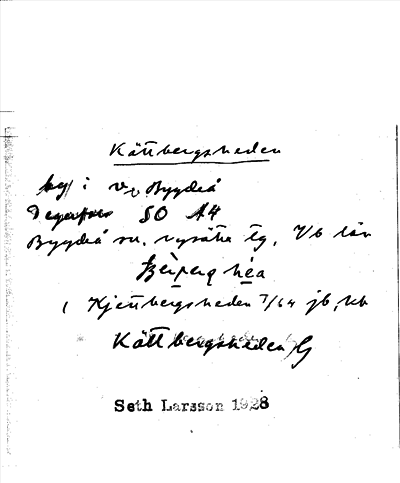 Kättbergsheden
by i v. Bygdeå
Degerfors SO A4
Bygdeå sn. nysätra tg, Vb län
Kjettbergsheden 7/64 jb, kb
Kättbergsheden/G
Seth Larsson 1928